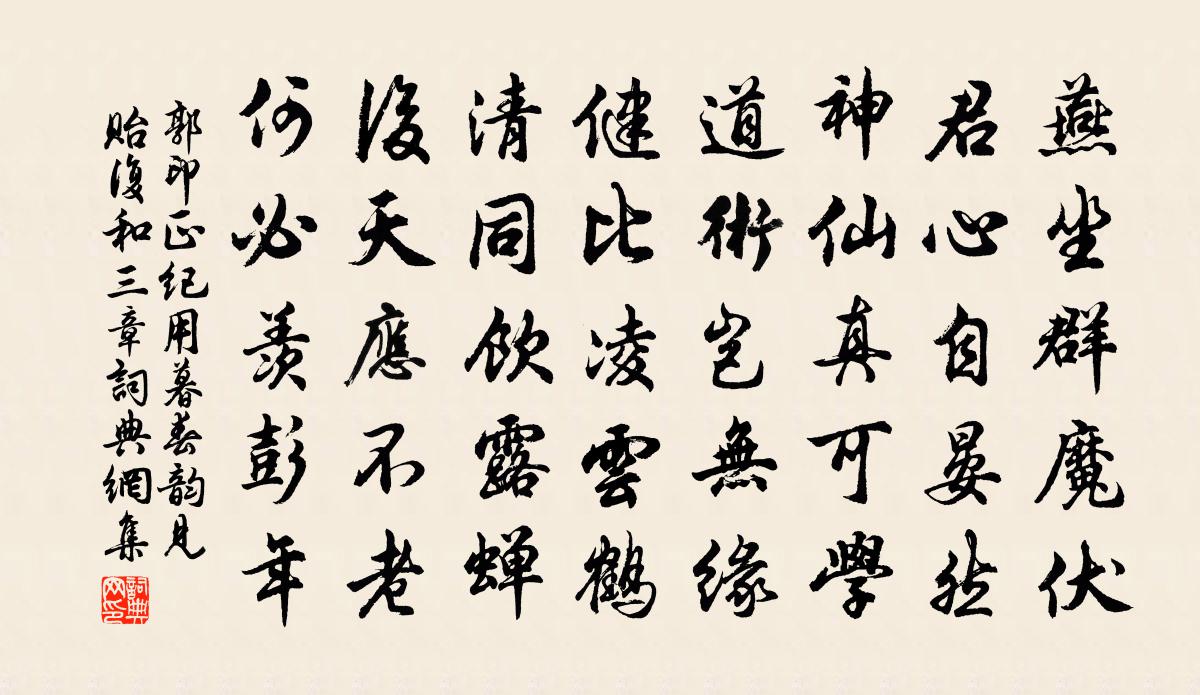 燕坐群魔伏
君心自晏然
神仙真可學
道術豈無緣
健比凌雲鶴
清同飲露蟬
後天應不老
何必羨彭年
郭印正紀用暮春韵見
貽復和三章詞典網集
詞典網印